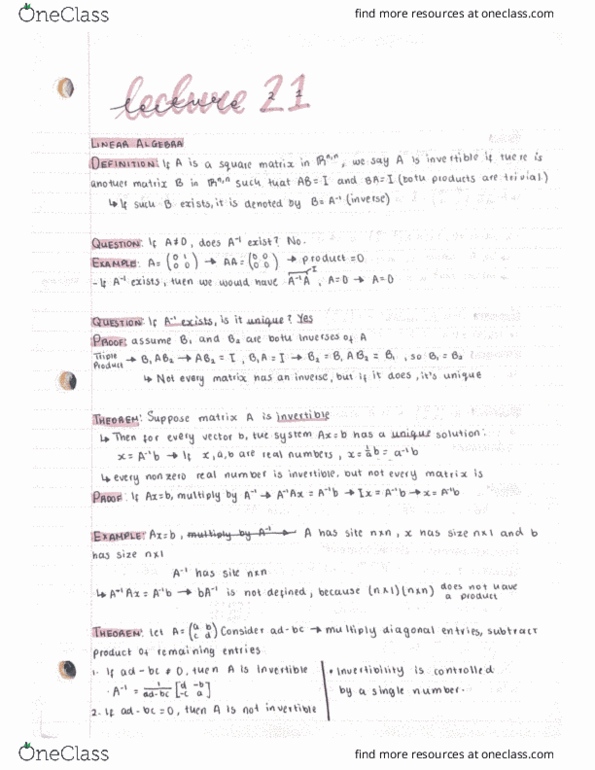 OneClass
find more resources at oneclass.com
lecture 21
LINEAR ALGEBRA
DEFINITION: If A is a square matrix in ℝⁿ,ⁿ, we say A is invertible if there is
another matrix B in ℝⁿ,ⁿ such that AB = I and BA = I (both products are trivial)
↳ If such B exists, it is denoted by B = A⁻¹ (inverse)
QUESTION: If A≠0, does A⁻¹ exist? No.
EXAMPLE: A = (0 1 / 0 0) → AA = (0 0 / 0 0) → product = 0
- If A⁻¹ exists, then we would have A⁻¹A, A=0 → A=0
I
QUESTION: If A⁻¹ exists, is it unique? Yes
PROOF: assume B₁ and B₂ are both inverses of A
Triple Product → B₁AB₂ → AB₂ = I, B₁A = I → B₂ = B₁AB₂ = B₁, so B₁ = B₂
↳ Not every matrix has an inverse, but if it does, it's unique
THEOREM: Suppose matrix A is invertible
↳ Then for every vector b, the system Ax=b has a unique solution:
x = A⁻¹b → If x,a,b are real numbers, x = 1/a b = a⁻¹b
↳ every nonzero real number is invertible, but not every matrix is
PROOF: If Ax=b, multiply by A⁻¹ → A⁻¹Ax = A⁻¹b → Ix = A⁻¹b → x = A⁻¹b
EXAMPLE: Ax=b, multiply by A⁻¹ → A has site n×n, x has size n×1 and b
has size n×1
A⁻¹ has site n×n
↳ A⁻¹Ax = A⁻¹b → bA⁻¹ is not defined, because (n×1)(n×n) does not have a product
THEOREM: let A = (a b / c d) Consider ad-bc → multiply diagonal entries, subtract
product of remaining entries
1. If ad-bc ≠ 0, then A is invertible
· A⁻¹ = 1/(ad-bc) [d -b / -c a]
2. If ad-bc = 0, then A is not invertible
• Invertibility is controlled
by a single number.
OneClass
find more resources at oneclass.com